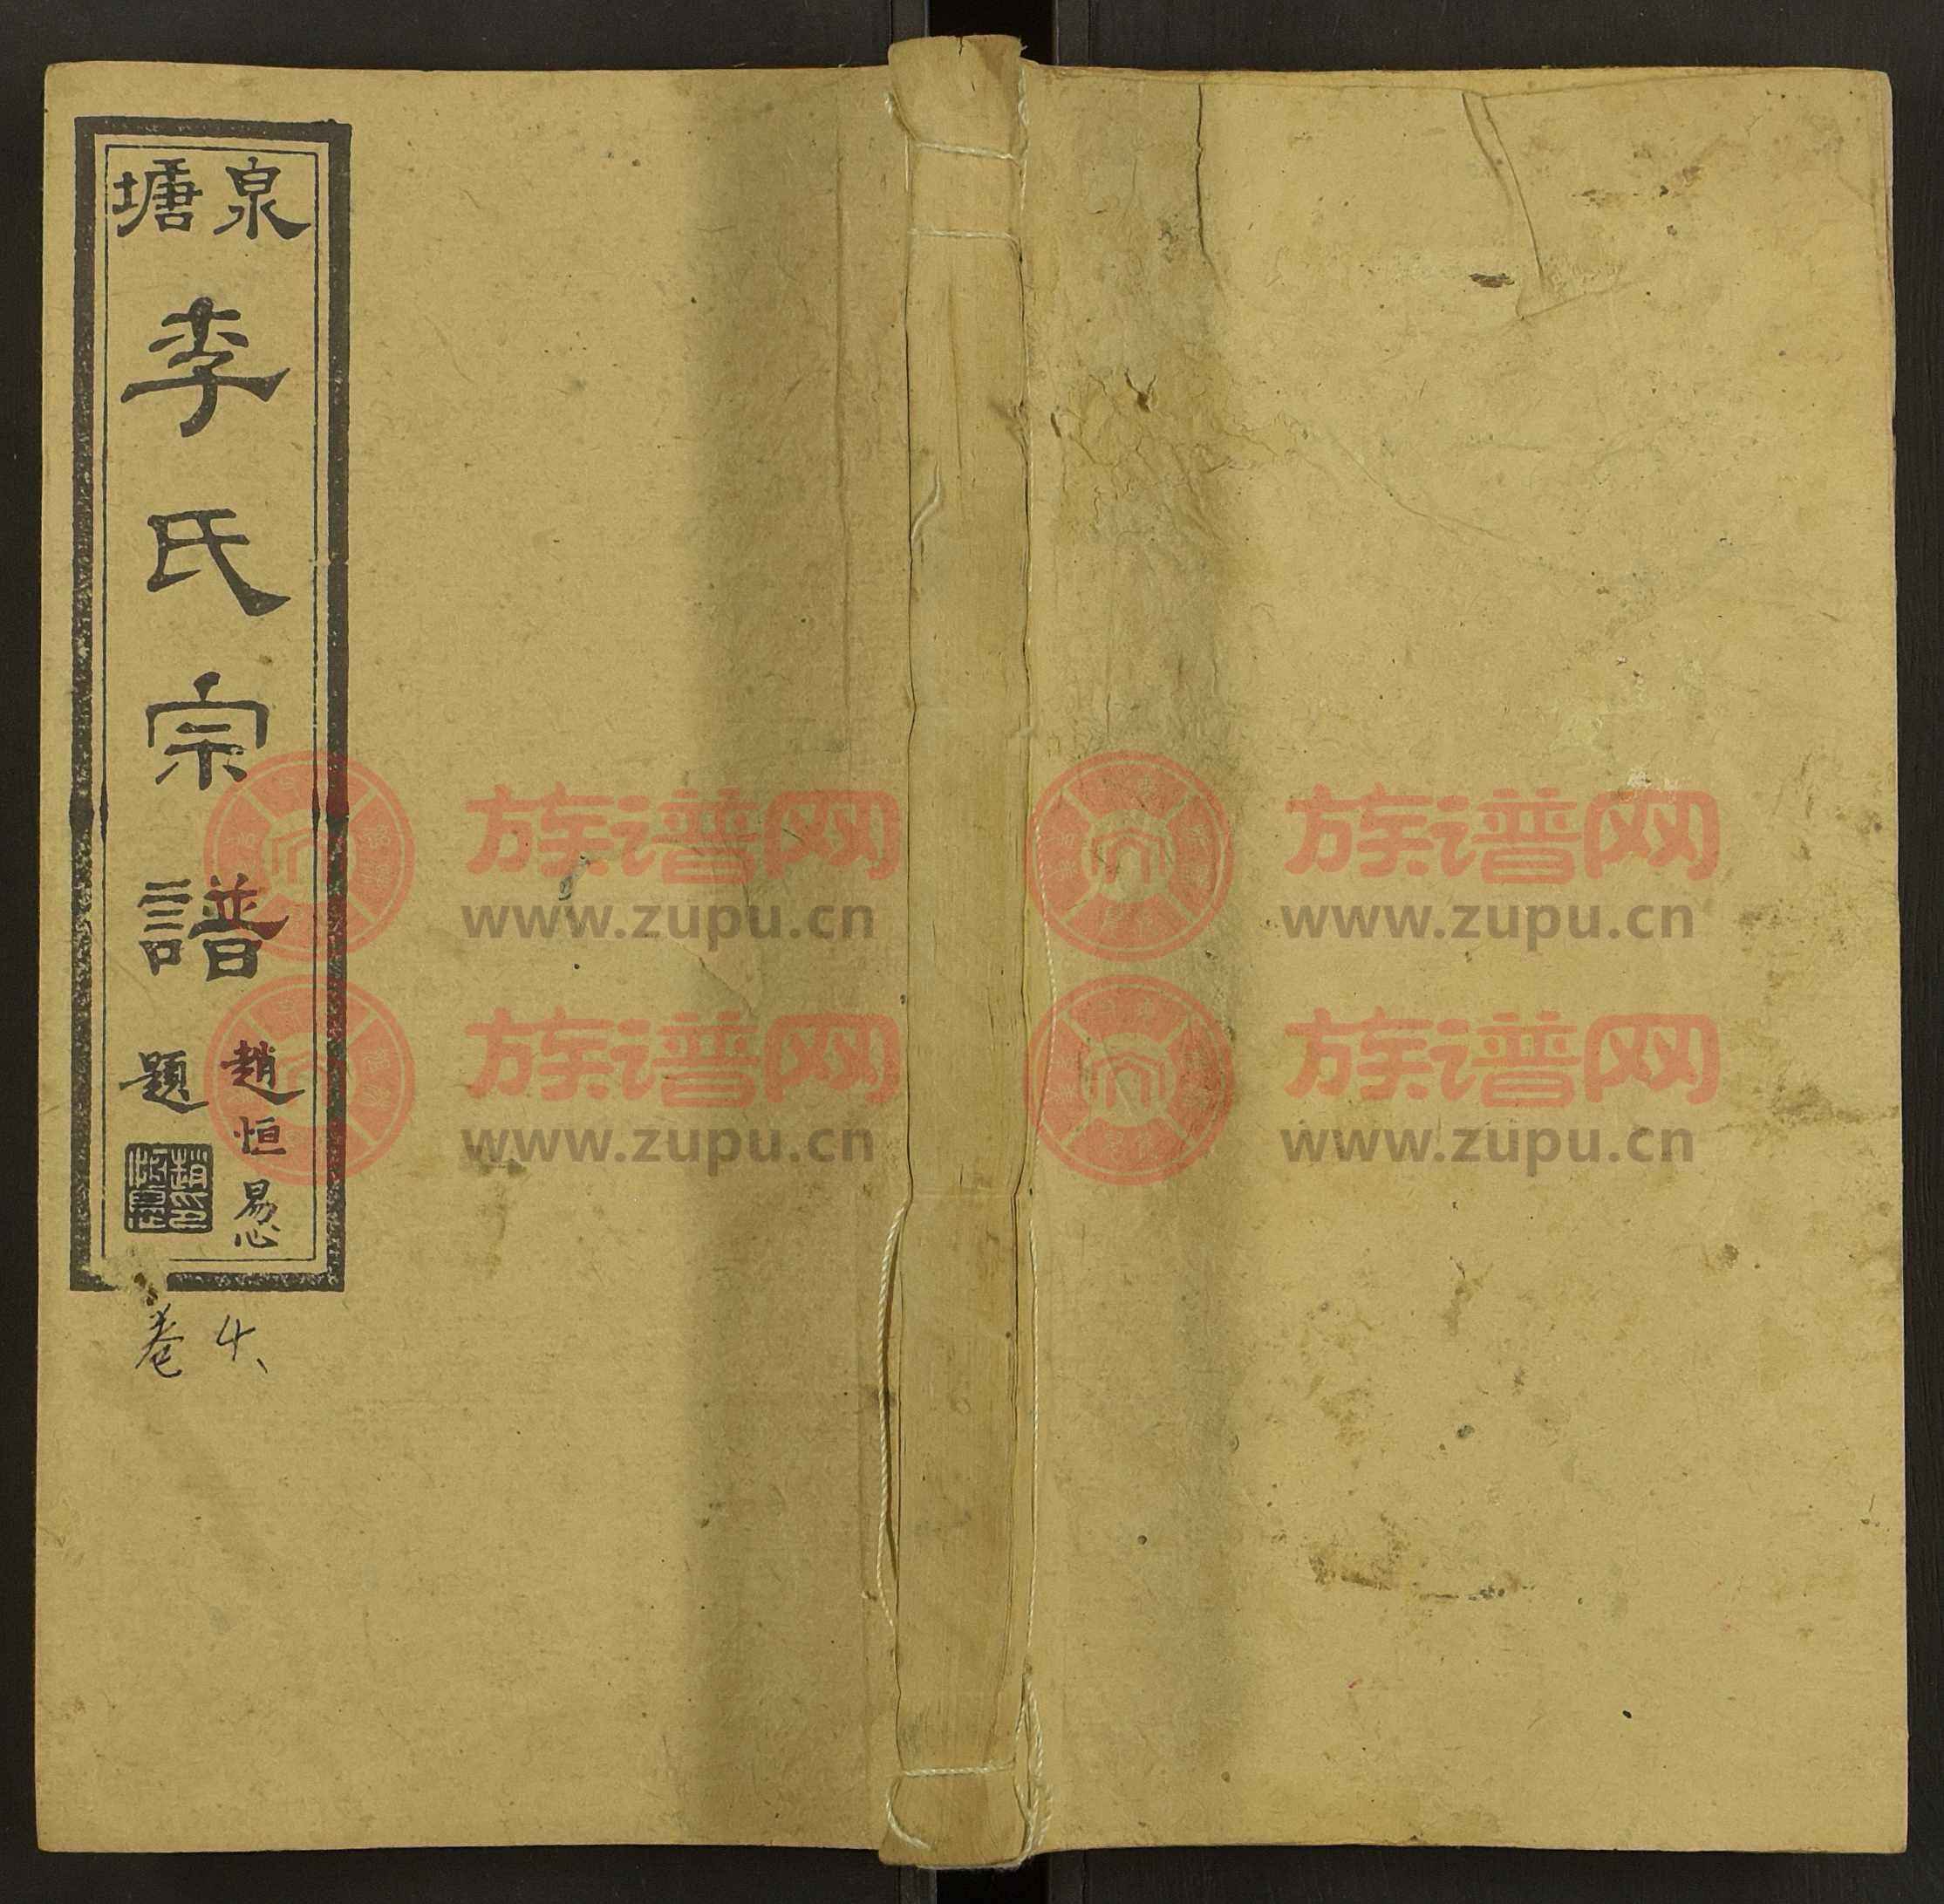 泉塘
李氏宗譜
趙恒惖
題
卷
族谱网
www.zupu.cn
族谱网
www.zupu.cn
族谱网
www.zupu.cn
族谱网
www.zupu.cn